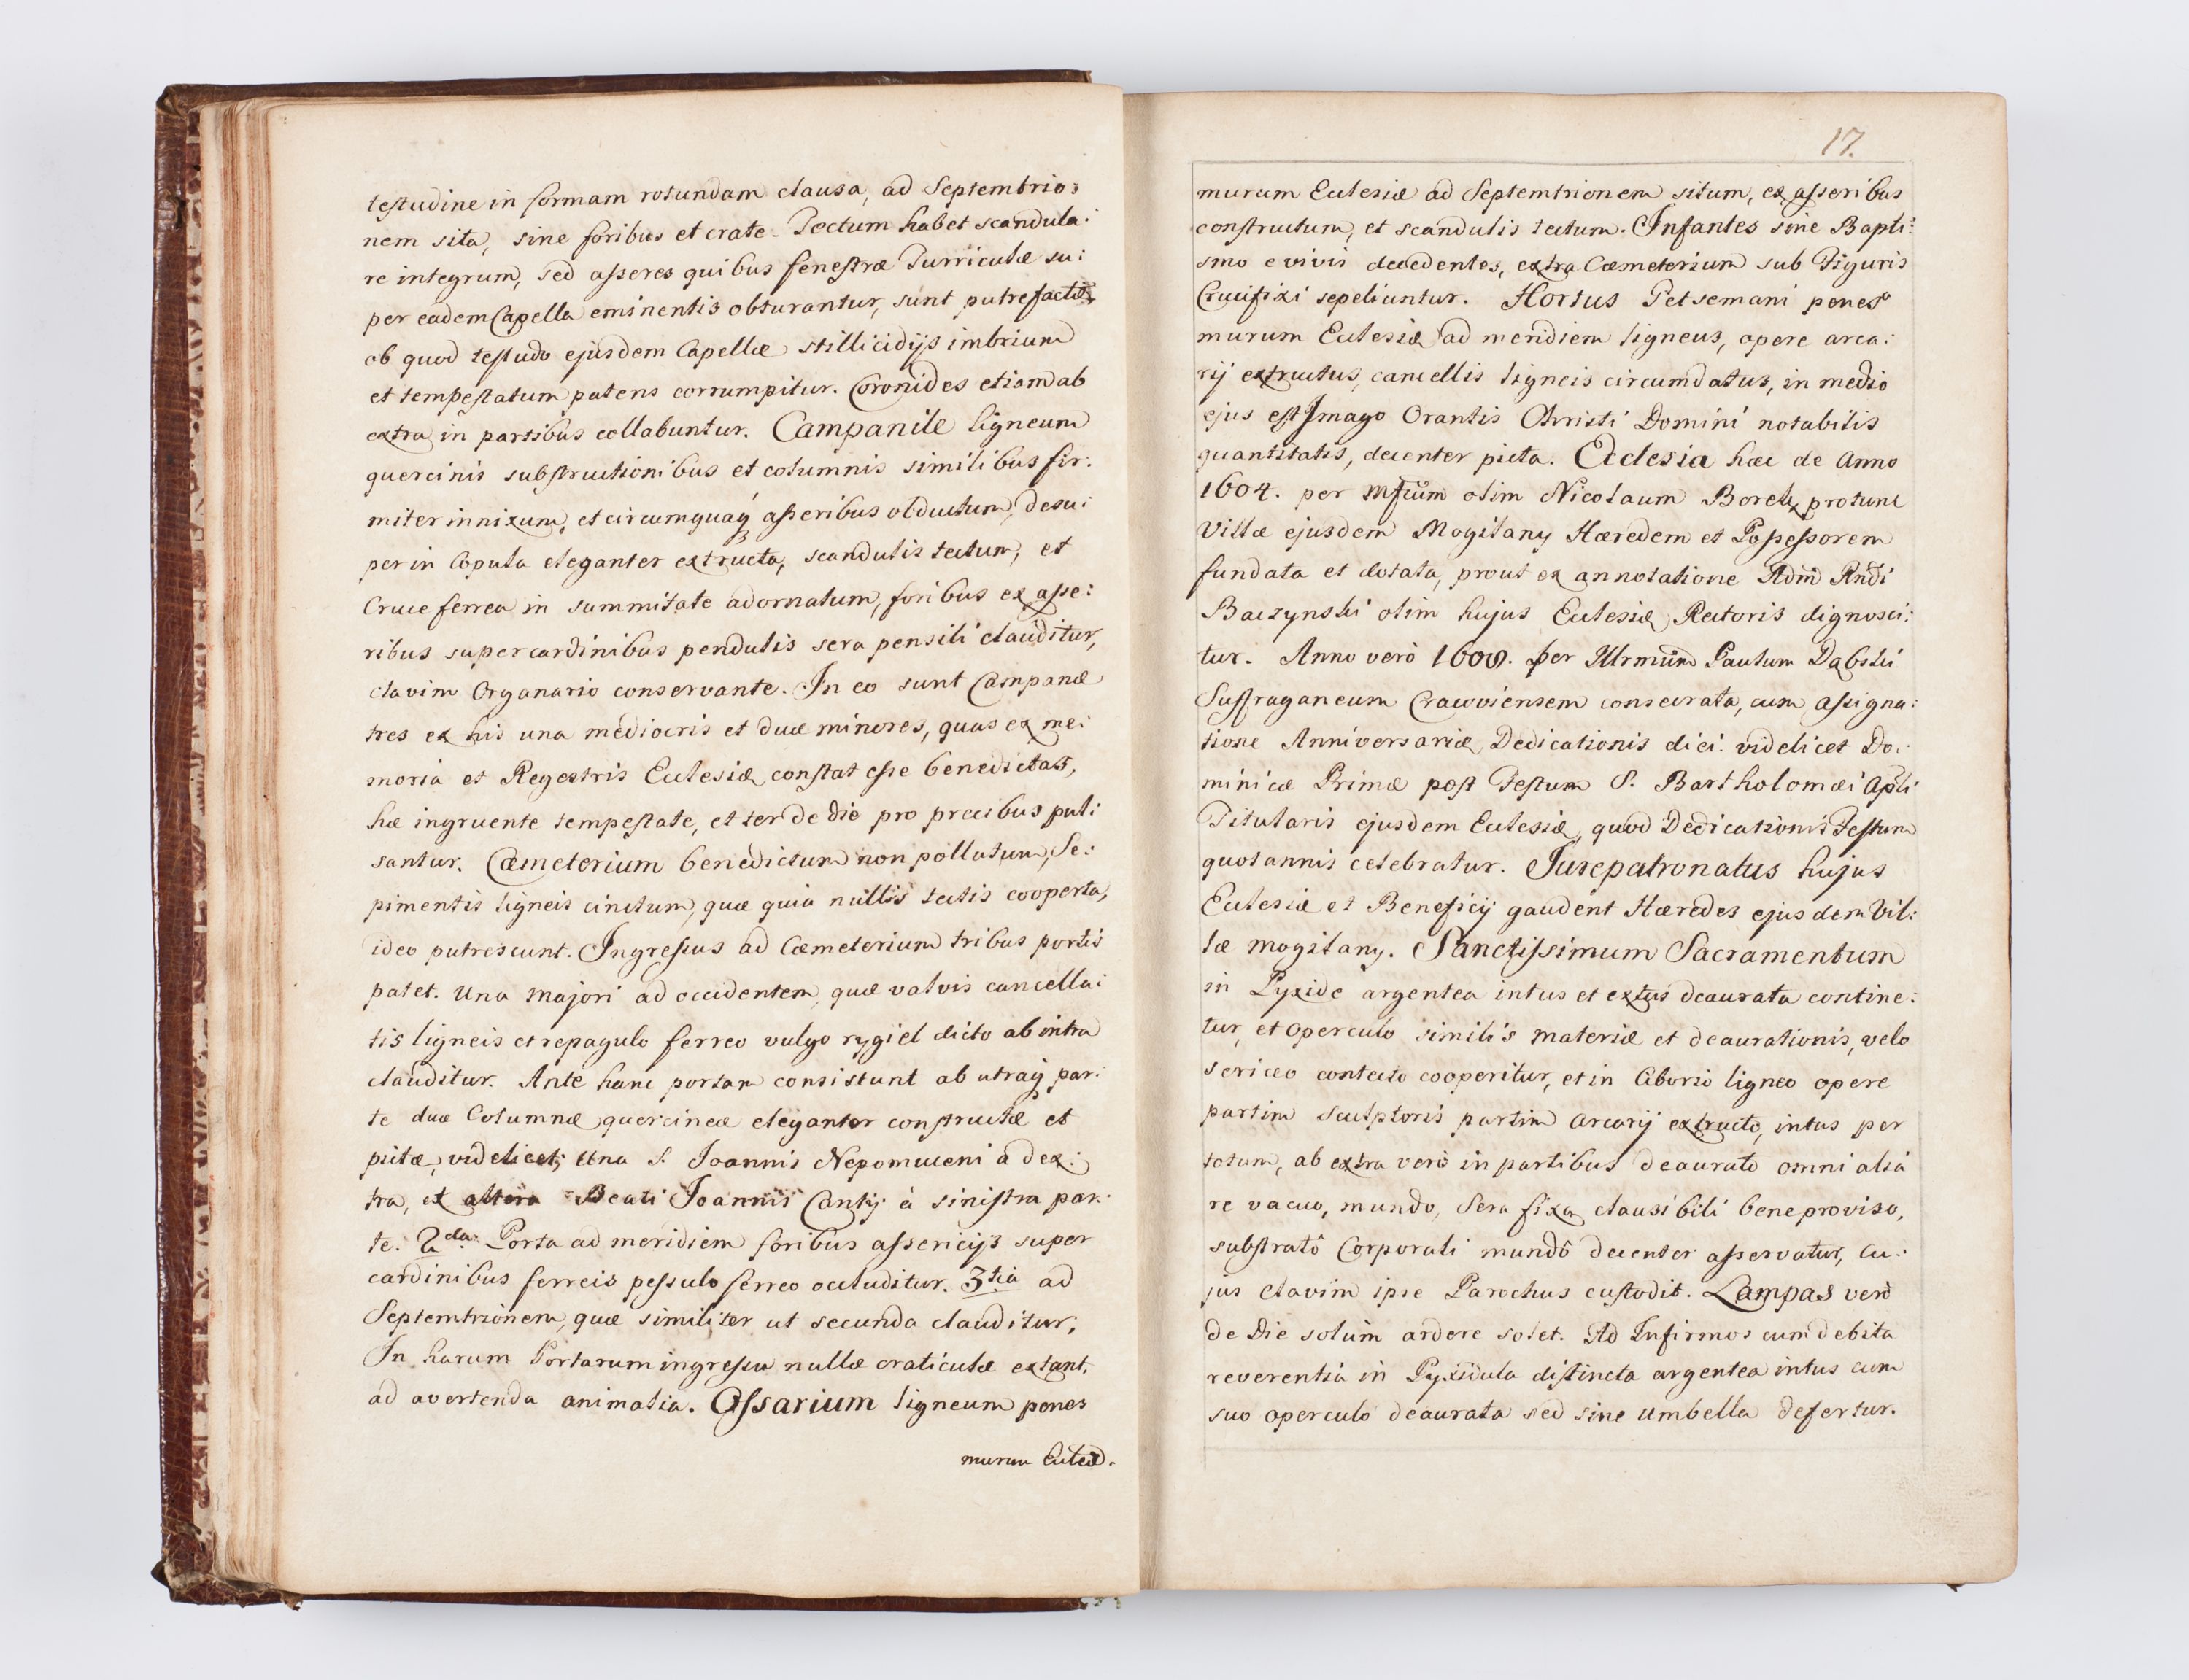 testudine in formam rotundam clausa, ad Septemtrio:
nem sita, sine foribus et crate. Tectum habet scandula:
re integrum, sed asseres quibus fenestræ Turriculæ su:
per eadem Capella eminentis obturantur, sunt putrefactæ,
ob quod testudo ejusdem Capellæ stillicidijs imbrium
et tempestatum patens corrumpitur. Coronides etiam ab
extra in partibus collabuntur. Campanile ligneum
quercinis substructionibus et columnis similibus fir:
miter innixum, et circumquaq́ asseribus obductum, desu:
per in Copula eleganter extructa, scandulis tectum, et
Cruce ferrea in summitate adornatum, foribus ex asse:
ribus super cardinibus pendulis sera pensili clauditur,
clavim Organario conservante. In eo sunt Campanæ
tres ex his una mediocris et duæ minores, quas ex me:
moria et Regestris Ecclesiæ constat esse benedictas,
hæ ingruente tempestate, et ter de die pro precibus pul:
santur. Cæmeterium benedictum non pollutum, Se:
pimentis ligneis cinctum, quæ quia nullis tectis cooperta,
ideo putrescunt. Ingressus ad Cæmeterium tribus portis
patet. Una majori ad occidentem, quæ valvis cancella:
tis ligneis et repagulo ferreo vulgo rygiel dicto ab intra
clauditur. Ante hanc portam consistunt ab utraq́ par:
te duæ Columnæ quercineæ eleganter constructæ et
pictæ, videlicet; Una S. Joannis Nepomuceni a dex:
tra, et altera Beati Joannis Cantij à sinistra par:
te. 2da Porta ad meridiem foribus assericijs super
cardinibus ferreis pessulo ferreo occluditur. 3tia ad
Septemtrionem, quæ similiter ut secunda clauditur,
In harum Portarum ingressu nullæ craticulæ extant,
ad avertenda animalia. Ossarium ligneum penes
murum Eccleæ.
17.
murum Ecclesiæ ad Septemtrionem situm, ex asseribus
constructum, et scandulis tectum. Infantes sine Bapti:
smo e vivis decedentes, extra Cæmeterium sub Figuris
Crucifixi sepeliuntur. Hortus Getsemani penes
murum Ecclesiæ ad meridiem ligneus, opere arca:
rij extructus, cancellis ligneis circumdatus, in medio
ejus est Imago Orantis Christi Domini notabilis
quantitatis, decenter picta. Ecclesia hæc de Anno
1604. per Mfcum olim Nicolaum Borek, protunc
Villæ ejusdem Mogilany Hæredem et Possessorem
fundata et dotata, prout ex annotatione Adm Rndi
Baczynski olim hujus Ecclesiæ Rectoris dignosci:
tur. Anno verò 1605. per Illrmum Paulum Dąbski
Suffraganeum Cracoviensem consecrata, cum assigna:
tione Anniversariæ Dedicationis diei videlicet Do:
minicæ Primæ post Festum S. Bartholomæi Apli
Titularis ejusdem Ecclesiæ, quod Dedicationis Festum
quotannis celebratur. Jurepatronatus hujus
Ecclesiæ et Beneficij gaudent Hæredes ejusdem Vil:
læ Mogilany. Sanctissimum Sacramentum
in Pyxide argentea intus et extus deaurata contine:
tur, et operculo similis materiæ et deaurationis, velo
sericeo contecto cooperitur, et in Ciborio ligneo opere
partim Sculptoris partim Arcarij extructo, intus per
totum, ab extra verò in partibus deaurato omni alia
re vacuo, mundo, Sera fixa clausibili bene proviso,
substratô Corporali mundô decenter asservatur, Cu:
jus clavim ipse Parochus custodit. Lampas verò
de Die solùm ardere solet. Ad Infirmos cum debita
reverentia in Pyxidula distincta argentea intus cum
suo operculo deaurata sed sine umbella defertur.